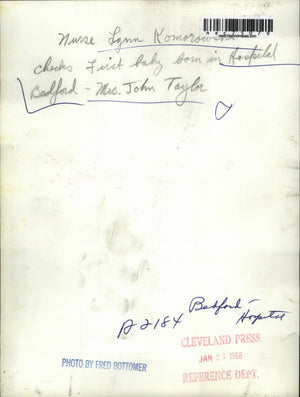 Nurse Lynn Komorowski
checks first baby born in Hospital
Bedford - Mrs. John Taylor
A 2184 Bedford -
Hospital
CLEVELAND PRESS
JAN 23 1968
REFERENCE DEPT.
PHOTO BY FRED BOTTOMER